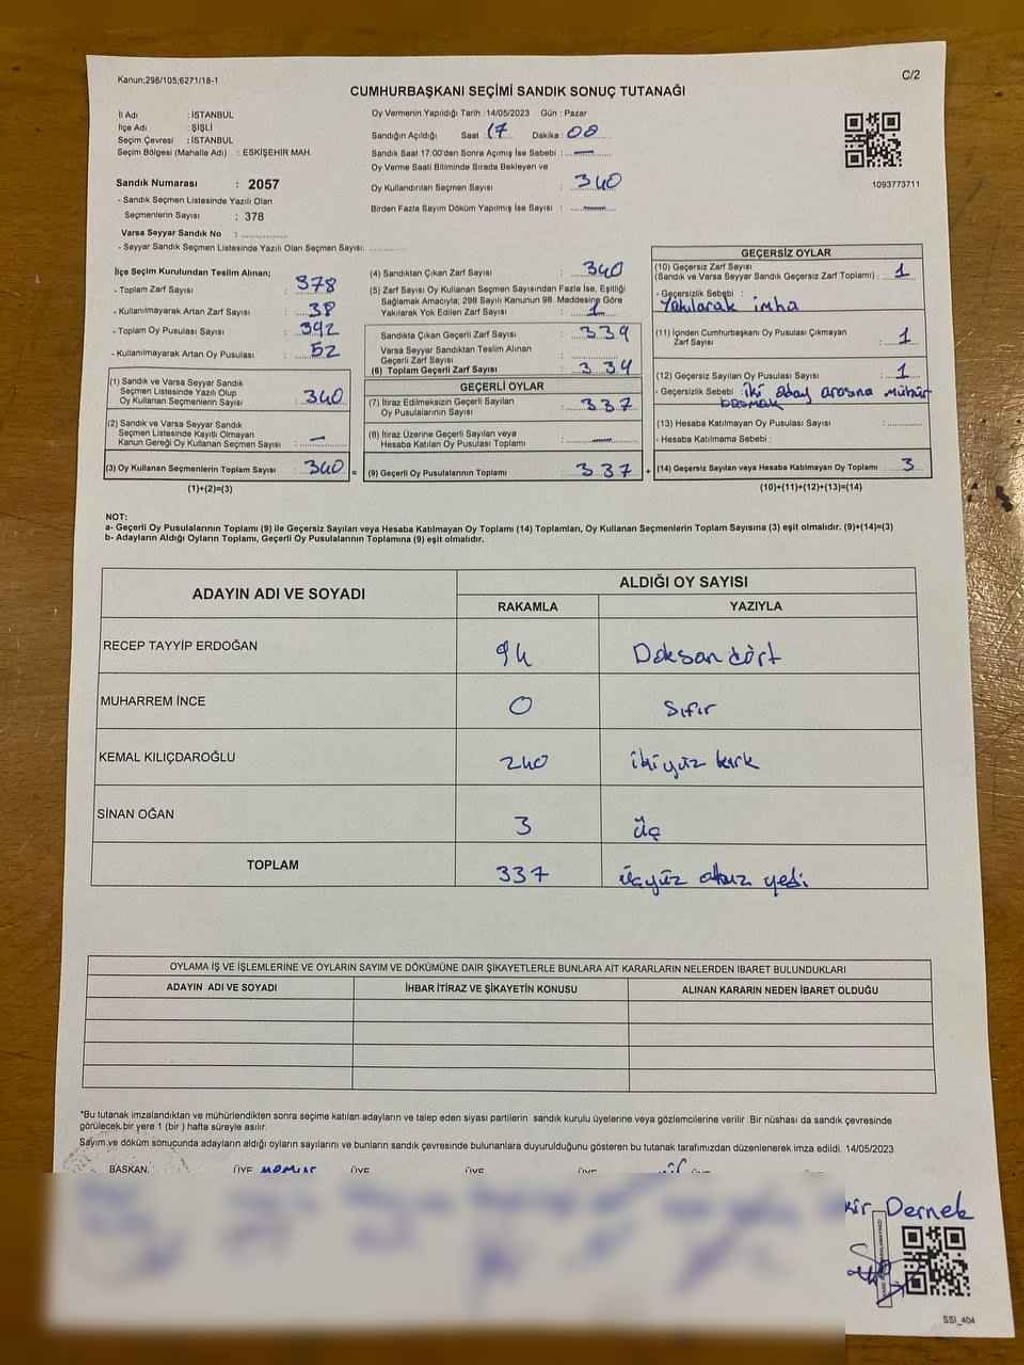 Kanun;298/105,6271/18-1
C/2
CUMHURBAŞKANI SEÇİMİ SANDIK SONUÇ TUTANAĞI
İl Adı : İSTANBUL
İlçe Adı : ŞİŞLİ
Seçim Çevresi : İSTANBUL
Seçim Bölgesi (Mahalle Adı) : ESKİŞEHİR MAH.
Sandık Numarası : 2057
- Sandık Seçmen Listesinde Yazılı Olan
Seçmenlerin Sayısı : 378
Varsa Seyyar Sandık No :
- Seyyar Sandık Seçmen Listesinde Yazılı Olan Seçmen Sayısı:
Oy Vermenin Yapıldığı Tarih : 14/05/2023 Gün : Pazar
Sandığın Açıldığı Saat 17 Dakika : 00
Sandık Saat 17.00'den Sonra Açılmış İse Sebebi : —
Oy Verme Saati Bitiminde Sırada Bekleyen ve
Oy Kullandırılan Seçmen Sayısı : 340
Birden Fazla Sayım Döküm Yapılmış İse Sayısı : —
1093773711
İlçe Seçim Kurulundan Teslim Alınan;
- Toplam Zarf Sayısı : 378
- Kullanılmayarak Artan Zarf Sayısı : 38
- Toplam Oy Pusulası Sayısı : 392
- Kullanılmayarak Artan Oy Pusulası : 52
(1) Sandık ve Varsa Seyyar Sandık
Seçmen Listesinde Yazılı Olup
Oy Kullanan Seçmenlerin Sayısı : 340
(2) Sandık ve Varsa Seyyar Sandık
Seçmen Listesinde Kayıtlı Olmayan
Kanun Gereği Oy Kullanan Seçmen Sayısı : —
(3) Oy Kullanan Seçmenlerin Toplam Sayısı : 340
(1)+(2)=(3)
(4) Sandıktan Çıkan Zarf Sayısı : 340
(5) Zarf Sayısı Oy Kullanan Seçmen Sayısından Fazla İse, Eşitliği
Sağlamak Amacıyla; 298 Sayılı Kanunun 98. Maddesine Göre
Yakılarak Yok Edilen Zarf Sayısı : 1
Sandıkta Çıkan Geçerli Zarf Sayısı : 339
Varsa Seyyar Sandıktan Teslim Alınan
Geçerli Zarf Sayısı :
(6) Toplam Geçerli Zarf Sayısı : 339
GEÇERLİ OYLAR
(7) İtiraz Edilmeksizin Geçerli Sayılan
Oy Pusulalarının Sayısı : 337
(8) İtiraz Üzerine Geçerli Sayılan veya
Hesaba Katılan Oy Pusulası Toplamı : —
= (9) Geçerli Oy Pusulalarının Toplamı : 337
GEÇERSİZ OYLAR
(10) Geçersiz Zarf Sayısı
(Sandık ve Varsa Seyyar Sandık Geçersiz Zarf Toplamı) : 1
- Geçersizlik Sebebi :
Yakılarak imha
(11) İçinden Cumhurbaşkanı Oy Pusulası Çıkmayan
Zarf Sayısı : 1
(12) Geçersiz Sayılan Oy Pusulası Sayısı : 1
- Geçersizlik Sebebi : iki aday arasına mühür
basmak
(13) Hesaba Katılmayan Oy Pusulası Sayısı :
- Hesaba Katılmama Sebebi :
+ (14) Geçersiz Sayılan veya Hesaba Katılmayan Oy Toplamı : 3
(10)+(11)+(12)+(13)=(14)
NOT:
a- Geçerli Oy Pusulalarının Toplamı (9) ile Geçersiz Sayılan veya Hesaba Katılmayan Oy Toplamı (14) Toplamları, Oy Kullanan Seçmenlerin Toplam Sayısına (3) eşit olmalıdır. (9)+(14)=(3)
b- Adayların Aldığı Oyların Toplamı, Geçerli Oy Pusulalarının Toplamına (9) eşit olmalıdır.
ADAYIN ADI VE SOYADI
ALDIĞI OY SAYISI
RAKAMLA YAZIYLA
RECEP TAYYİP ERDOĞAN 94 Doksan dört
MUHARREM İNCE 0 Sıfır
KEMAL KILIÇDAROĞLU 240 ikiyüz kırk
SİNAN OĞAN 3 üç
TOPLAM 337 üçyüz otuz yedi
OYLAMA İŞ VE İŞLEMLERİNE VE OYLARIN SAYIM VE DÖKÜMÜNE DAİR ŞİKAYETLERLE BUNLARA AİT KARARLARIN NELERDEN İBARET BULUNDUKLARI
ADAYIN ADI VE SOYADI İHBAR İTİRAZ VE ŞİKAYETİN KONUSU ALINAN KARARIN NEDEN İBARET OLDUĞU
*Bu tutanak imzalandıktan ve mühürlendikten sonra seçime katılan adayların ve talep eden siyasi partilerin sandık kurulu üyelerine veya gözlemcilerine verilir. Bir nüshası da sandık çevresinde
görülecek bir yere 1 (bir) hafta süreyle asılır.
Sayım ve döküm sonucunda adayların aldığı oyların sayılarını ve bunların sandık çevresinde bulunanlara duyurulduğunu gösteren bu tutanak tarafımızdan düzenlenerek imza edildi. 14/05/2023
BAŞKAN ÜYE ÜYE ÜYE ÜYE
Dernek
SSİ_404